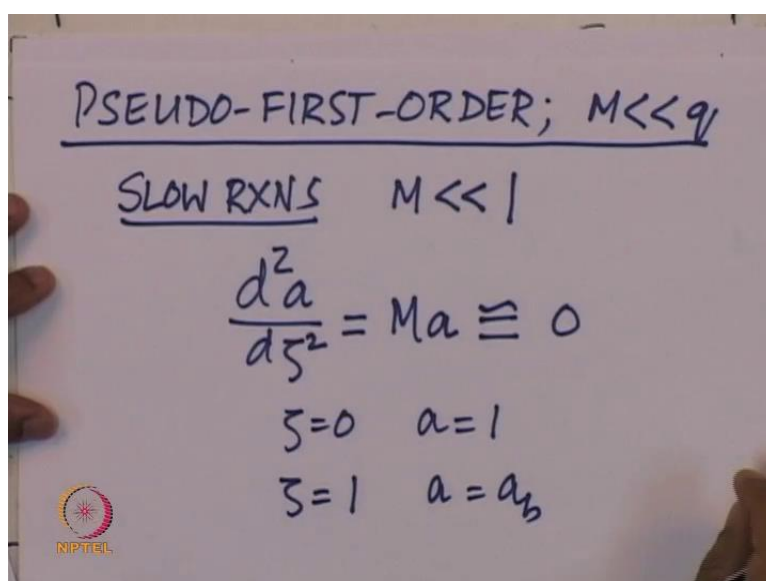 PSEUDO-FIRST-ORDER; M<<q
SLOW RXNS M<<1
d²a/dζ² = Ma ≌ 0
ζ=0 a=1
ζ=1 a=a_b
NPTEL